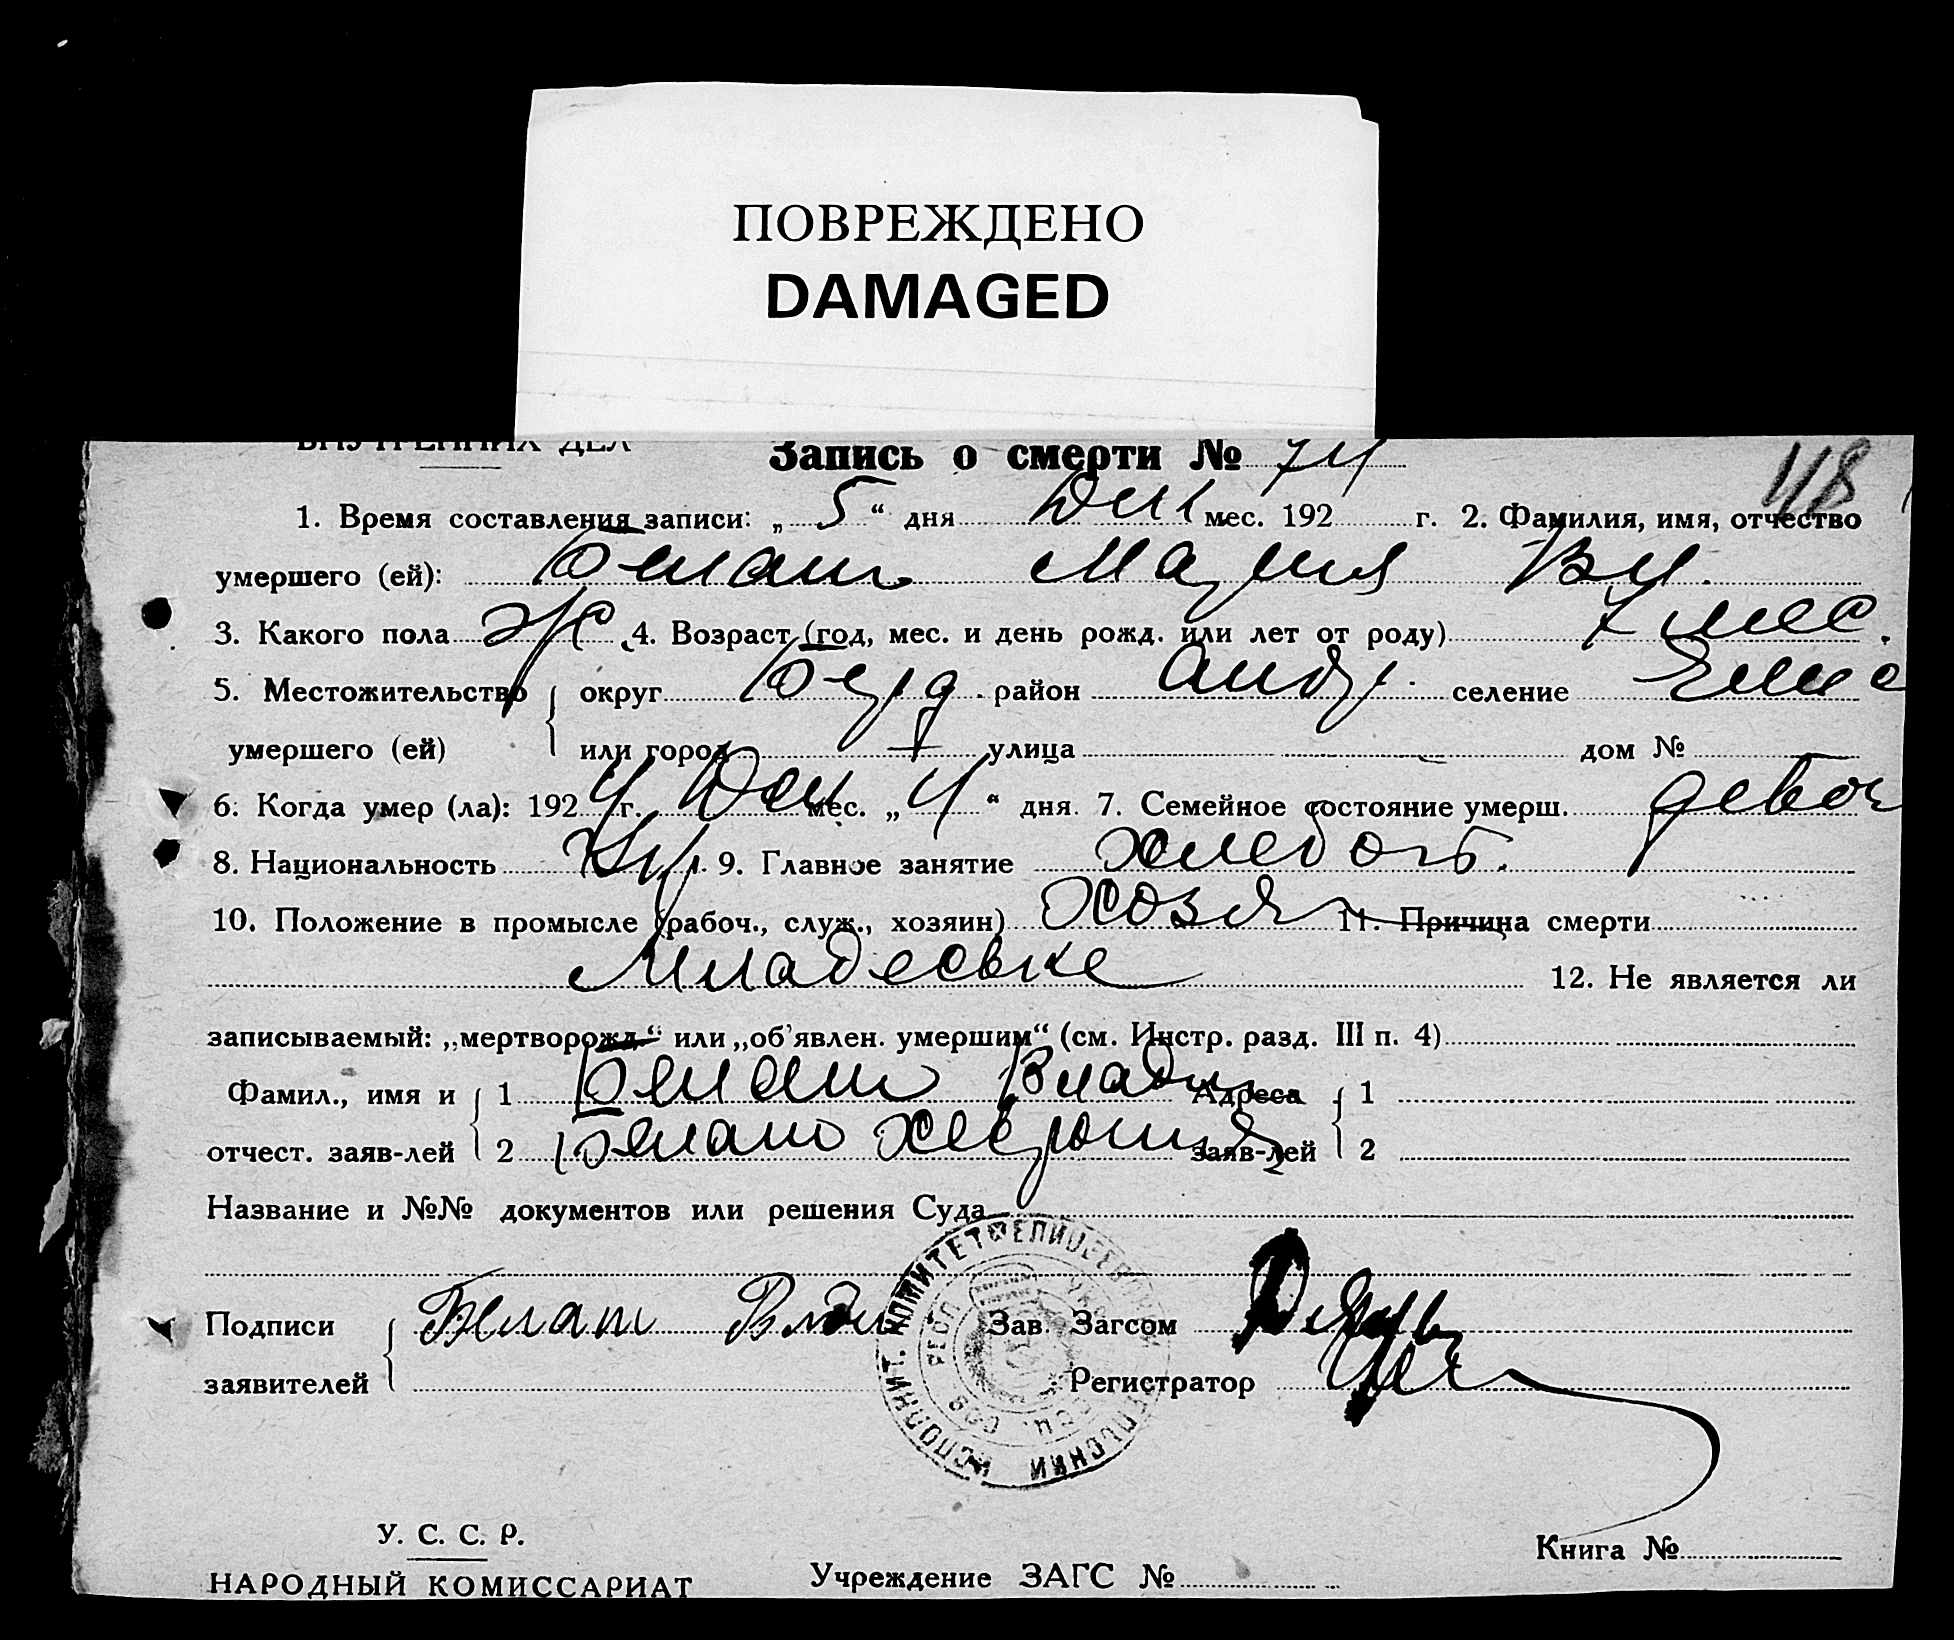 ПОВРЕЖДЕНО
DAMAGED
ВНУТРЕННИХ ДЕЛ
Запись о смерти № 74
48
1. Время составления записи: „ 5 “ дня Дек мес. 192 г. 2. Фамилия, имя, отчество
умершего (ей): Белаш Мария Вл.
3. Какого пола Ж 4. Возраст (год, мес. и день рожд. или лет от роду) 7 мес.
5. Местожительство округ Берд. район Андр. селение
умершего (ей) или город улица дом №
6. Когда умер (ла): 192 4 г. Дек мес. „ 4 “ дня. 7. Семейное состояние умерш. девоч
8. Национальность Укр. 9. Главное занятие хлебоб.
10. Положение в промысле (рабоч., служ., хозяин) Хозяин 11. Причина смерти
Младеське
12. Не является ли
записываемый: „мертворожд.“ или „об'явлен. умершим“ (см. Инстр. разд. III п. 4)
Фамил., имя и 1 Белаш Влад Адреса 1
отчест. заяв-лей 2 Белаш Хеврония заяв-лей 2
Название и №№ документов или решения Суда
Подписи Белаш Влад Зав. Загсом
заявителей Регистратор
ИСПОЛНИТ. КОМИТЕТ
У. С. С. Р.
Книга №
НАРОДНЫЙ КОМИССАРИАТ Учреждение ЗАГС №